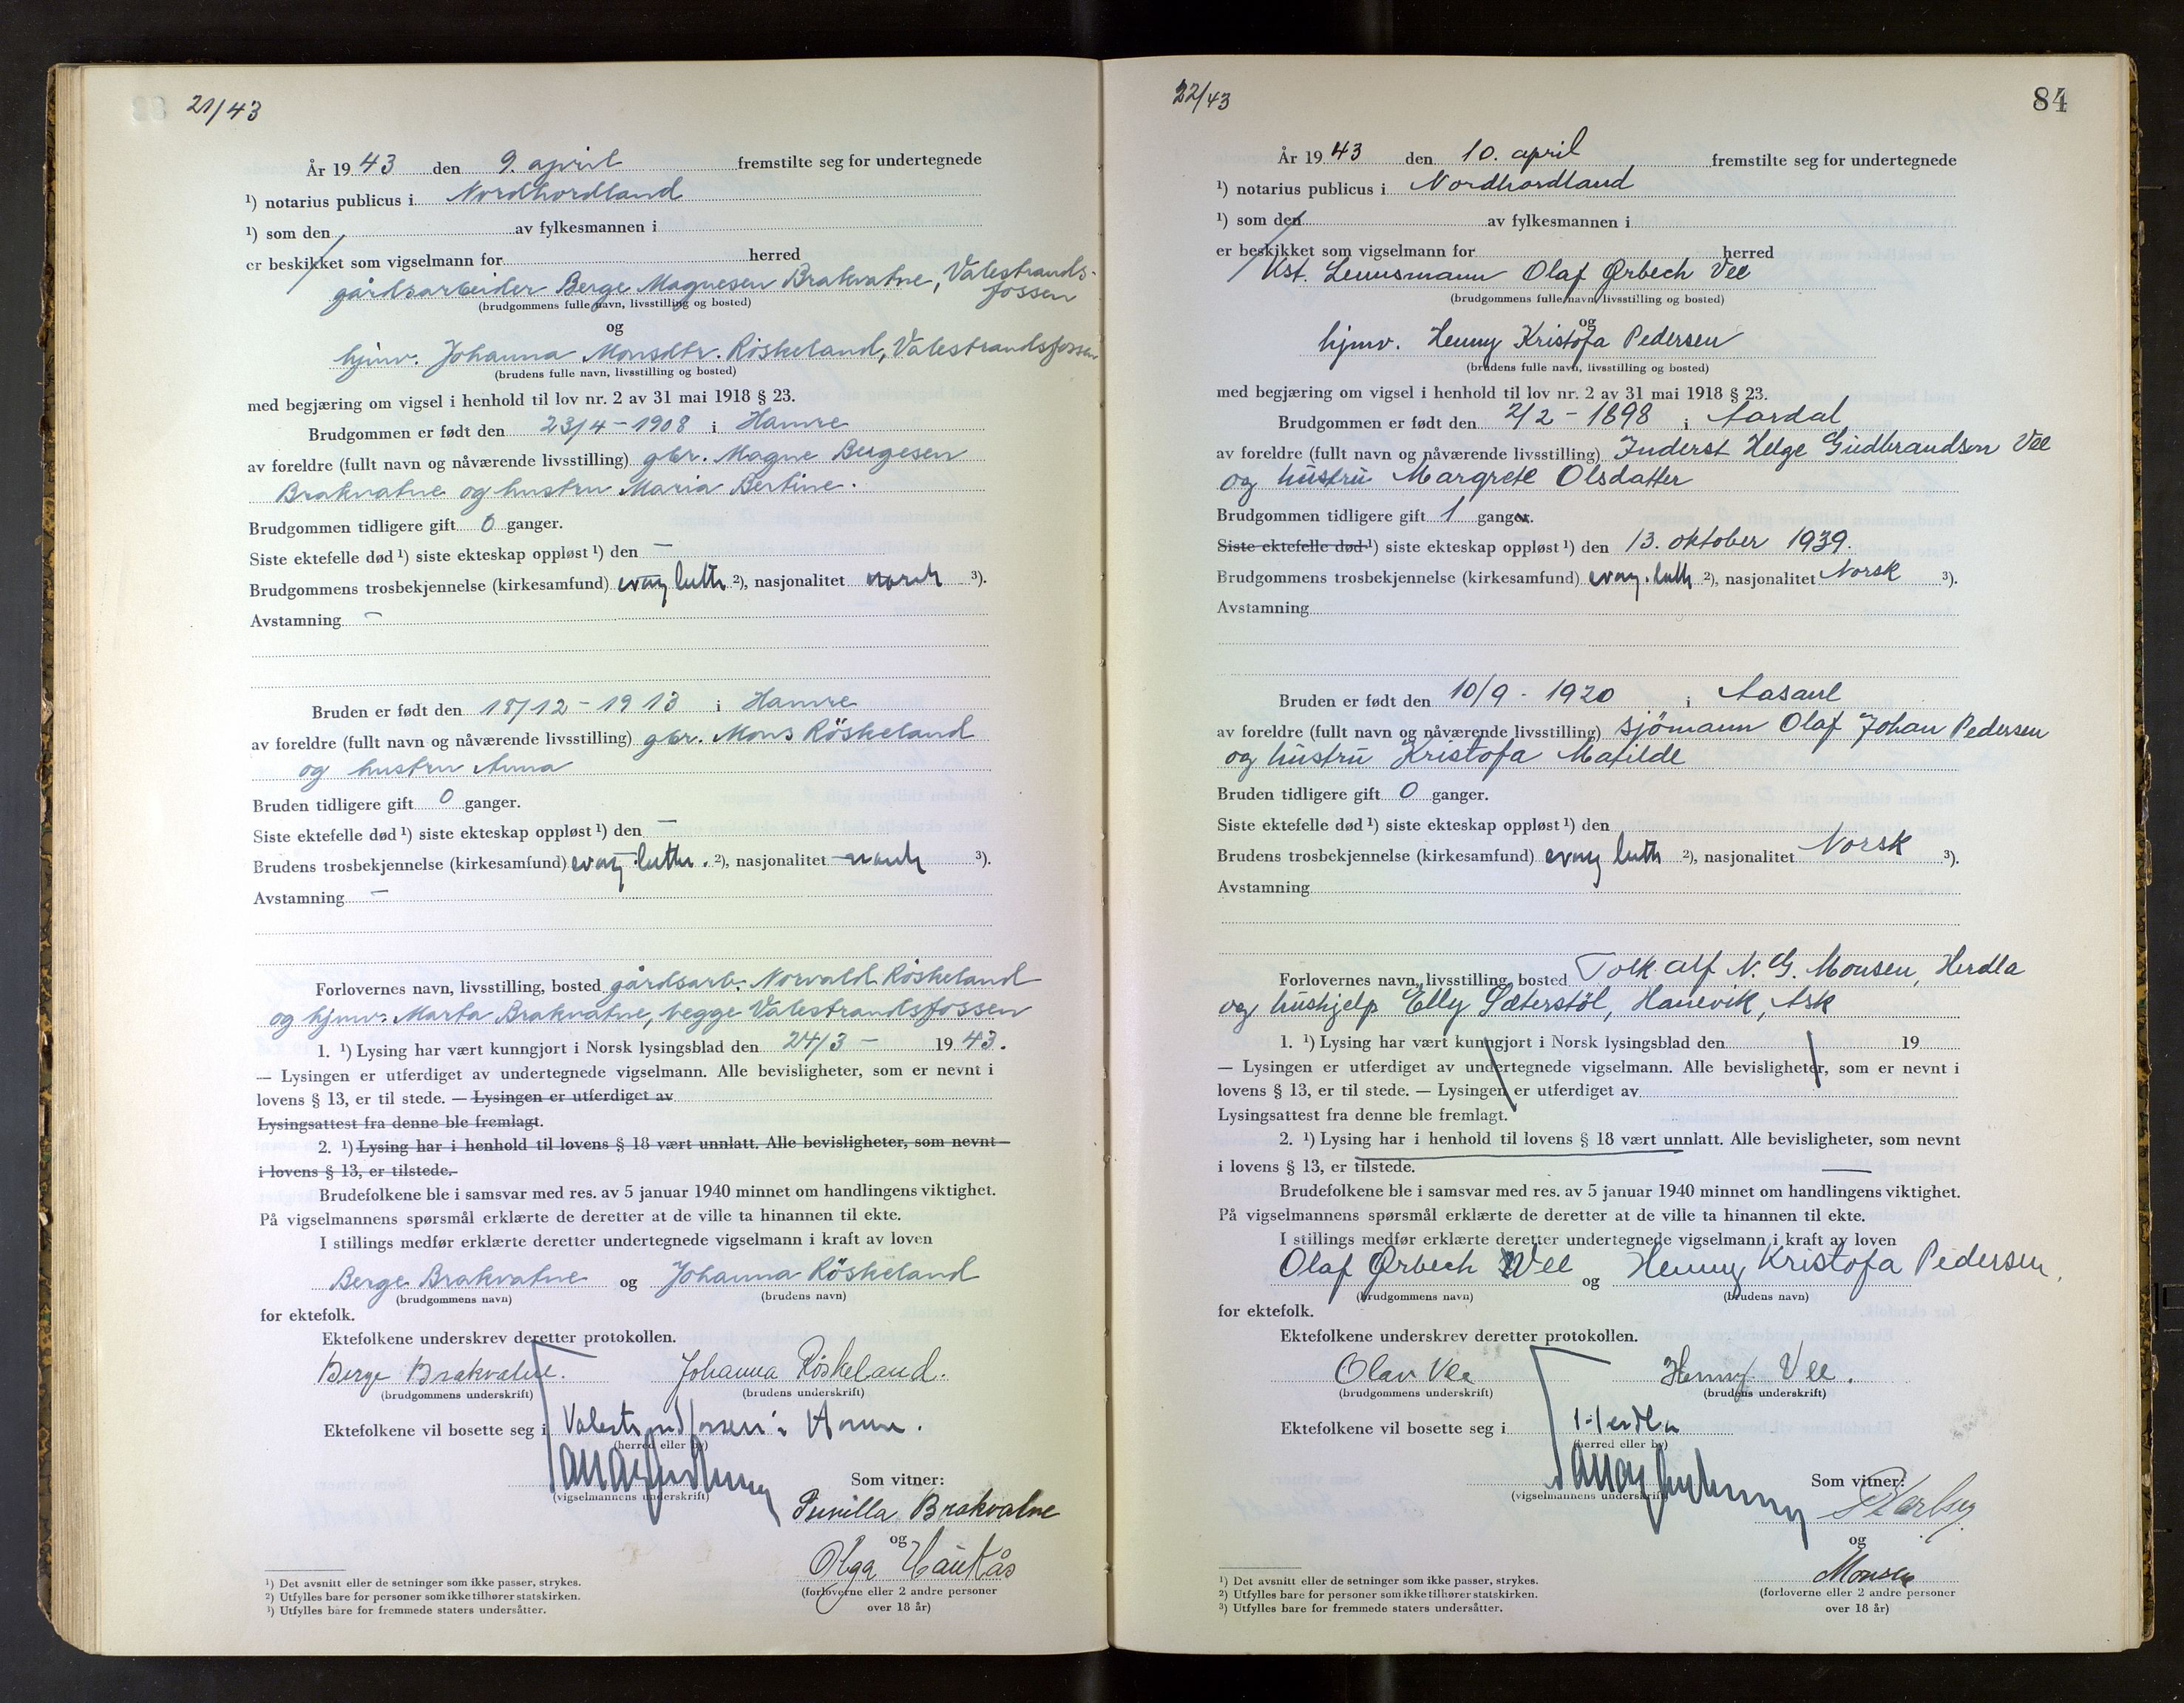 21/43
År 1943 den 9. april fremstilte seg for undertegnede
¹) notarius publicus i Nordhordland
¹) som den av fylkesmannen i
er beskikket som vigselmann for herred
gårdsarbeider Berge Magnesen Brakvatne, Valestrands-
fossen
(brudgommens fulle navn, livsstilling og bosted)
og
hjmv. Johanna Monsdtr. Röskeland, Valestrandsfossen
(brudens fulle navn, livsstilling og bosted)
med begjæring om vigsel i henhold til lov nr. 2 av 31 mai 1918 § 23.
Brudgommen er født den 23/4 - 1908 i Hamre
av foreldre (fullt navn og nåværende livsstilling) gbr. Magne Bergesen
Brakvatne og hustru Maria Bertine.
Brudgommen tidligere gift 0 ganger.
Siste ektefelle død¹) siste ekteskap oppløst¹) den —
Brudgommens trosbekjennelse (kirkesamfund) evang luth ²), nasjonalitet norsk ³).
Avstamning —
Bruden er født den 18/12 - 1913 i Hamre
av foreldre (fullt navn og nåværende livsstilling) gbr. Mons Röskeland
og hustru Anna
Bruden tidligere gift 0 ganger.
Siste ektefelle død¹) siste ekteskap oppløst¹) den —
Brudens trosbekjennelse (kirkesamfund) evang. luth. ²), nasjonalitet norsk ³).
Avstamning —
Forlovernes navn, livsstilling, bosted gårdsarb. Norvald Röskeland
og hjmv. Marta Brakvatne, begge Valestrandsfossen
1. ¹) Lysing har vært kunngjort i Norsk lysingsblad den 24/3 - 1943.
— Lysingen er utferdiget av undertegnede vigselmann. Alle bevisligheter, som er nevnt i
lovens § 13, er til stede. — Lysingen er utferdiget av
Lysingsattest fra denne ble fremlagt.
2. ¹) Lysing har i henhold til lovens § 18 vært unnlatt. Alle bevisligheter, som nevnt
i lovens § 13, er tilstede.
Brudefolkene ble i samsvar med res. av 5 januar 1940 minnet om handlingens viktighet.
På vigselmannens spørsmål erklærte de deretter at de ville ta hinannen til ekte.
I stillings medfør erklærte deretter undertegnede vigselmann i kraft av loven
Berge Brakvatne og Johanna Röskeland
(brudgommens navn) (brudens navn)
for ektefolk.
Ektefolkene underskrev deretter protokollen.
Berge Brakvatne. Johanna Röskeland.
(brudgommens underskrift) (brudens underskrift)
Ektefolkene vil bosette seg i Valestrandsfossen i Hamre.
(herred eller by)
Som vitner:
(vigselmannens underskrift)
Pernilla Brakvatne
og
Olga Haukås
(forloverne eller 2 andre personer
over 18 år)
¹) Det avsnitt eller de setninger som ikke passer, strykes.
²) Utfylles bare for personer som ikke tilhører statskirken.
³) Utfylles bare for fremmede staters undersåtter.
22/43
84
År 1943 den 10. april fremstilte seg for undertegnede
¹) notarius publicus i Nordhordland
¹) som den av fylkesmannen i
er beskikket som vigselmann for herred
Kst. Lensmann Olaf Ørbech Vee
(brudgommens fulle navn, livsstilling og bosted)
og
hjmv. Henny Kristofa Pedersen
(brudens fulle navn, livsstilling og bosted)
med begjæring om vigsel i henhold til lov nr. 2 av 31 mai 1918 § 23.
Brudgommen er født den 2/2 - 1898 i Aardal
av foreldre (fullt navn og nåværende livsstilling) Inderst Helge Gudbrandson Vee
og hustru Margrete Olsdatter
Brudgommen tidligere gift 1 ganger.
Siste ektefelle død¹) siste ekteskap oppløst¹) den 13. oktober 1939.
Brudgommens trosbekjennelse (kirkesamfund) evang. luth ²), nasjonalitet Norsk ³).
Avstamning
Bruden er født den 10/9 - 1920 i Aasane
av foreldre (fullt navn og nåværende livsstilling) sjömann Olaf Johan Pedersen
og hustru Kristofa Matilde
Bruden tidligere gift 0 ganger.
Siste ektefelle død¹) siste ekteskap oppløst¹) den
Brudens trosbekjennelse (kirkesamfund) evang luth ²), nasjonalitet Norsk ³).
Avstamning
Forlovernes navn, livsstilling, bosted Tolk Alf N. G. Monsen, Herdla
og hushjelp Elly Sæterstöl, Hanevik, Ask
1. ¹) Lysing har vært kunngjort i Norsk lysingsblad den 19
— Lysingen er utferdiget av undertegnede vigselmann. Alle bevisligheter, som er nevnt i
lovens § 13, er til stede. — Lysingen er utferdiget av
Lysingsattest fra denne ble fremlagt.
2. ¹) Lysing har i henhold til lovens § 18 vært unnlatt. Alle bevisligheter, som nevnt
i lovens § 13, er tilstede.
Brudefolkene ble i samsvar med res. av 5 januar 1940 minnet om handlingens viktighet.
På vigselmannens spørsmål erklærte de deretter at de ville ta hinannen til ekte.
I stillings medfør erklærte deretter undertegnede vigselmann i kraft av loven
Olaf Ørbech Vee og Henny Kristofa Pedersen.
(brudgommens navn) (brudens navn)
for ektefolk.
Ektefolkene underskrev deretter protokollen.
Olav Vee Henny Vee.
(brudgommens underskrift) (brudens underskrift)
Ektefolkene vil bosette seg i Herdla
(herred eller by)
Som vitner:
(vigselmannens underskrift)
og
Monsen
(forloverne eller 2 andre personer
over 18 år)
¹) Det avsnitt eller de setninger som ikke passer, strykes.
²) Utfylles bare for personer som ikke tilhører statskirken.
³) Utfylles bare for fremmede staters undersåtter.